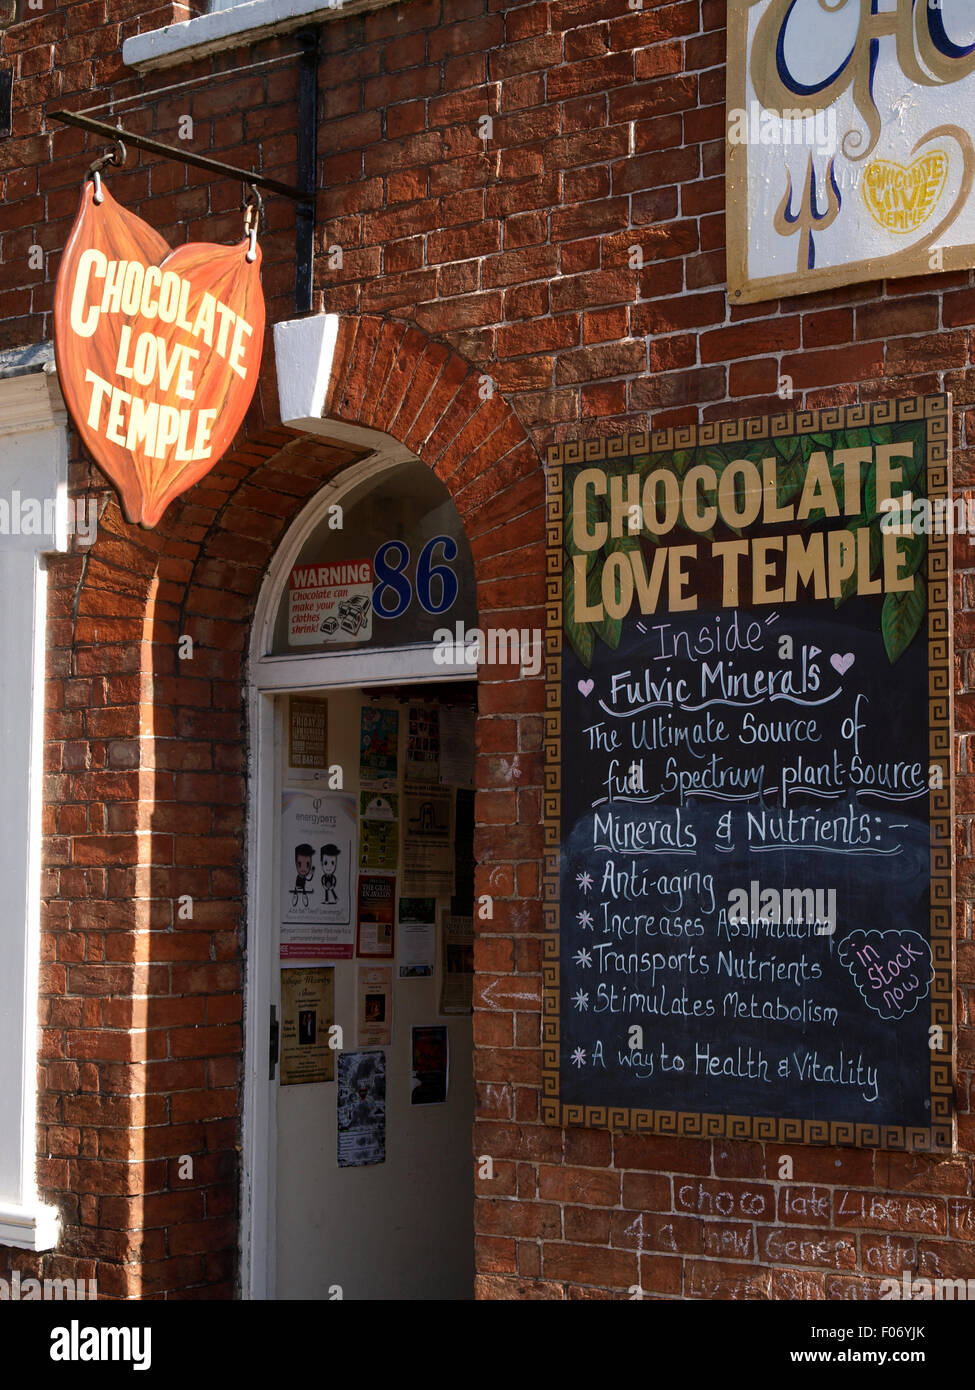 CHOCOLATE
LOVE
TEMPLE
CHOCOLATE
LOVE
TEMPLE
WARNING
Chocolate can
make your
clothes
shrink!
86
CHOCOLATE
LOVE TEMPLE
"Inside"
Fulvic Mineral's
The Ultimate Source of
full Spectrum plant-Source
Minerals & Nutrients:-
* Anti-aging
* Increases Assimilation
* Transports Nutrients
* Stimulates Metabolism
* A way to Health & Vitality
in
stock
now
energydots
FRIDAY
BAR
THE GRAIL
IN AVALON
Chocolate Libera
4 a new Generation
alamy
Image ID: F06YJK
www.alamy.com